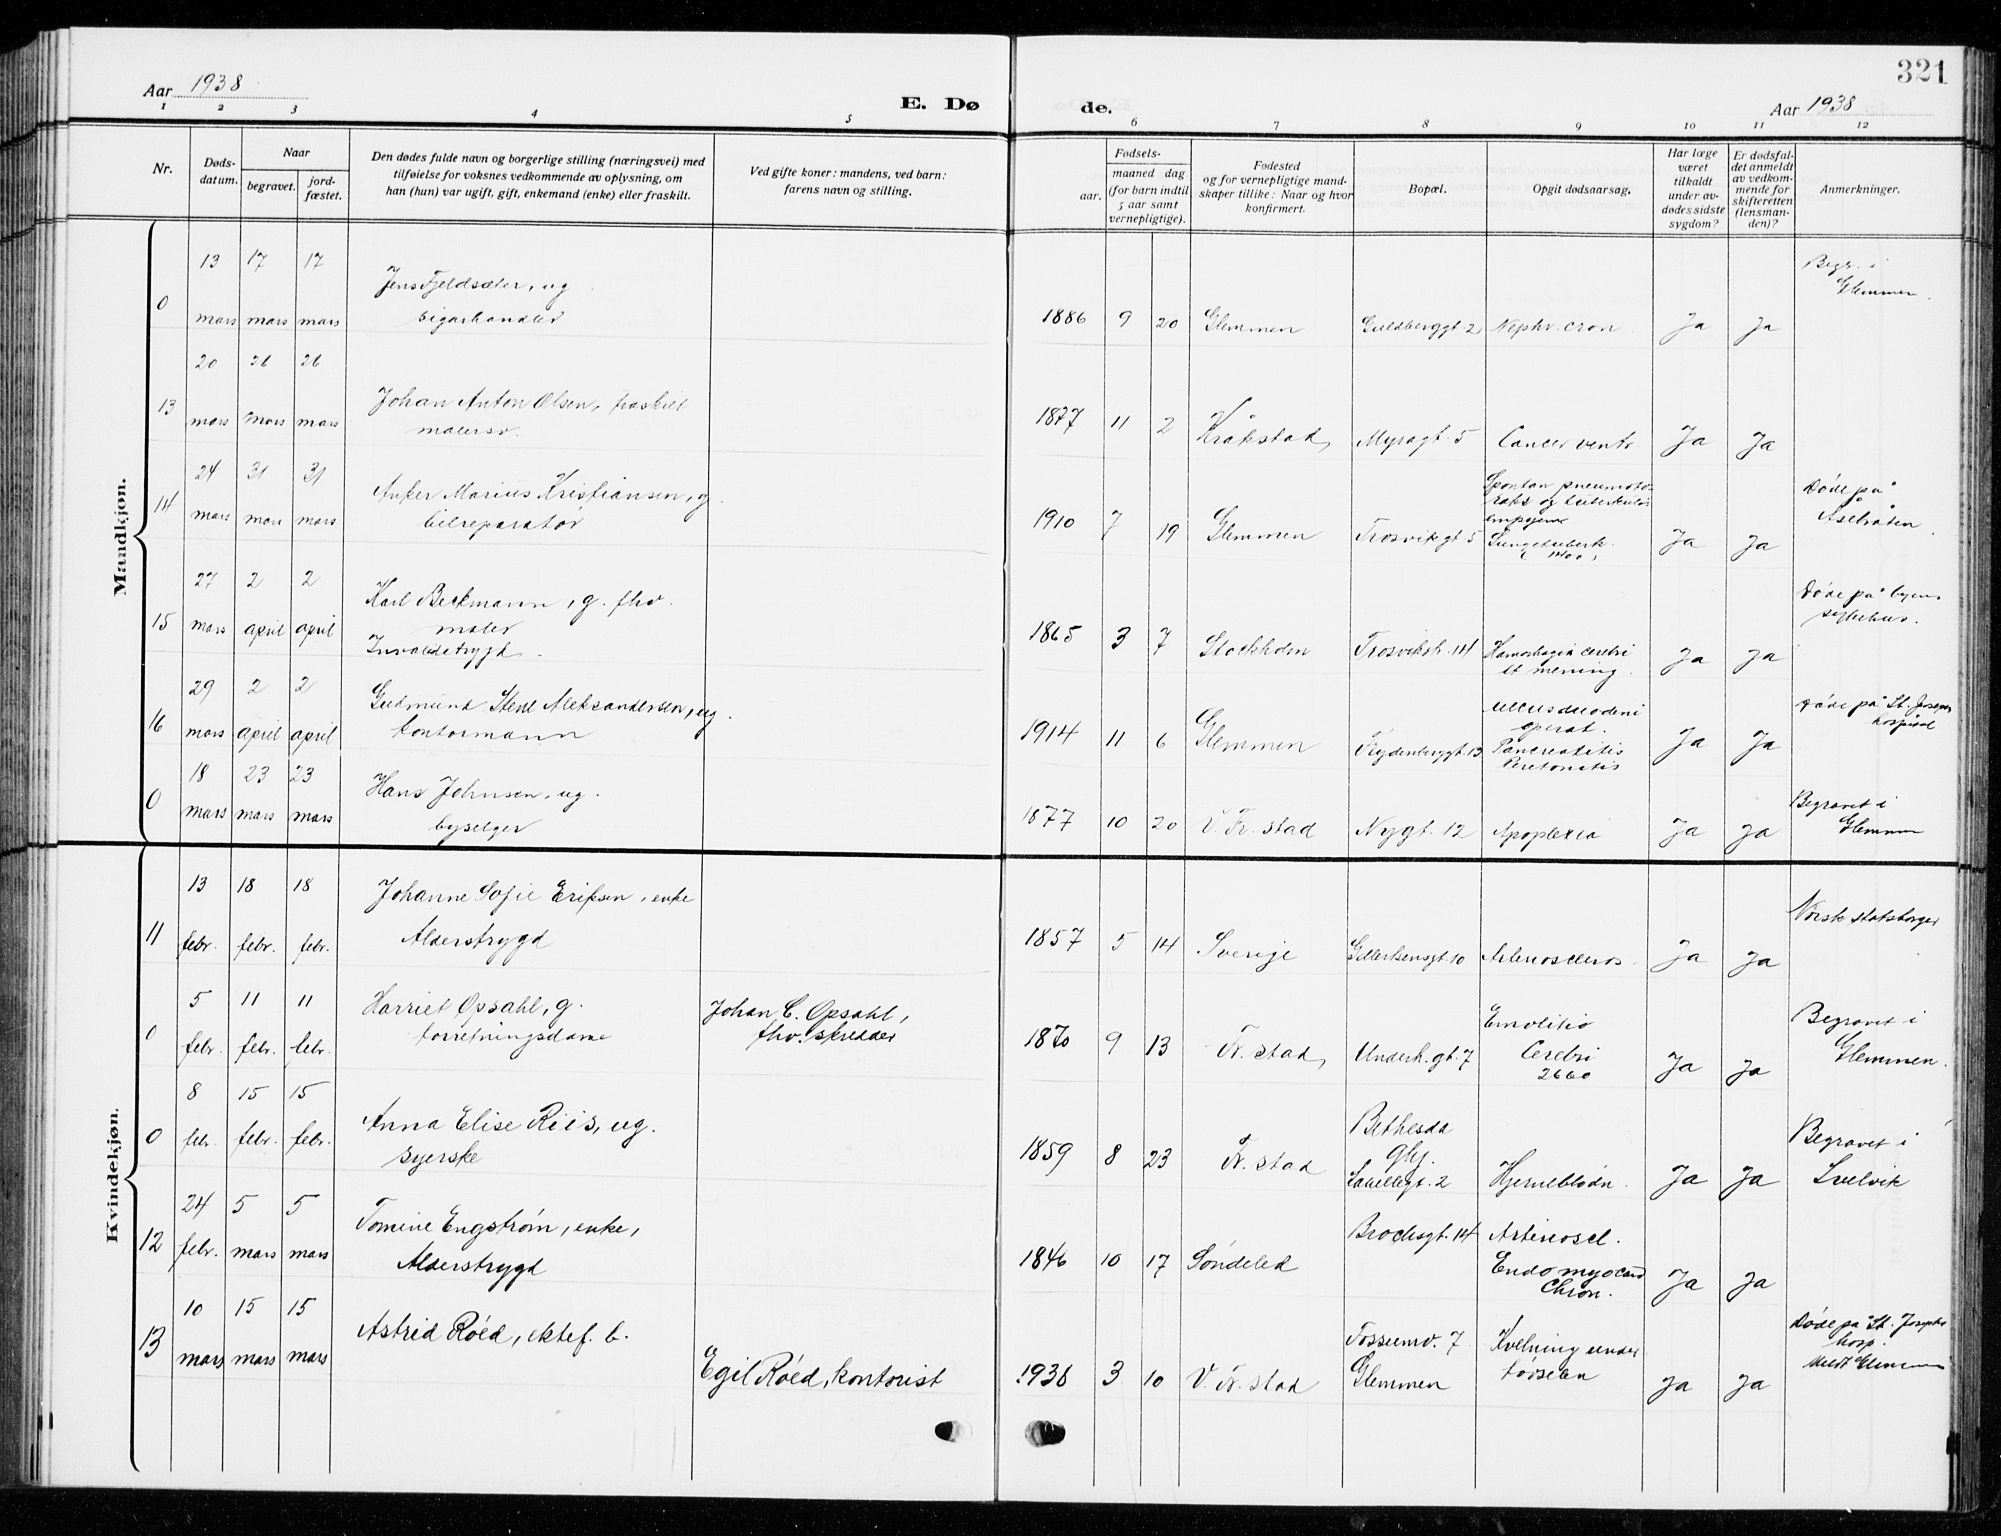 321
Aar 1938
E. Dø
de.
Aar 1938
1 2 3 4 5 6 7 8 9 10 11 12
Nr.
Døds-
datum.
Naar
begravet.
jord-
fæstet.
Den dødes fulde navn og borgerlige stilling (næringsvei) med
tilføielse for voksnes vedkommende av oplysning, om
han (hun) var ugift, gift, enkemand (enke) eller fraskilt.
Ved gifte koner: mandens, ved barn:
farens navn og stilling.
Fødsels-
aar. maaned dag
(for barn indtil
5 aar samt
vernepligtige).
Fødested
og for vernepligtige mand-
skaper tillike: Naar og hvor
konfirmert.
Bopæl.
Opgit dødsaarsag.
Har læge
været
tilkaldt
under av-
dødes sidste
sygdom?
Er dødsfal-
det anmeldt
av vedkom-
mende for
skifteretten
(lensman-
den)?
Anmerkninger.
Mandkjøn.
13 17 17
Jens Fjeldsæter, ug
Begr. i
Glemmen.
0 mars mars mars
sigarhandler
1886 9 20 Glemmen Guldberggt. 2 Nephr. cron Ja Ja
20 26 26
13 mars mars mars
Johan Anton Olsen, fraskilt
malersv.
1877 11 2 Kråkstad, Myragt. 5 Cancer ventr. Ja Ja
24 31 31
14 mars mars mars
Anker Marius Kristiansen, g.
bilreparatør
1910 7 19 Glemmen Trosvikgt 5
Spontan pneumoto-
raks og tuberkuløs
empyem
Lungetuberk.
Ja Ja
Døde på
Åsebråten
27 2 2
15 mars april april
Karl Beckmann, g. fhv.
maler
Invalidetrygd.
1865 3 7 Stockholm Trosvikstr. 14
Hæmorhagia cerebri
et mening.
Ja Ja
Døde på byens
sykehus.
29 2 2
16 mars april april
Gudmund Stene Aleksandersen, ug.
kontormann
1914 11 6 Glemmen Frydenberggt. 13
Ulcus duodeni
operat.
Pancreatitis
Peretonitis
Ja Ja
Døde på St. Josephs
hospital
18 23 23
0 mars mars mars
Hans Johnsen, ug.
byselger
1877 10 20 V. Fr. stad Nygt. 12 Apoplexia Ja Ja
Begravet i
Glemmen
Kvindekjøn.
13 18 18
11 febr. febr. febr.
Johanne Sofie Eriksen, enke
Alderstrygd
1857 5 14 Sverige Gilbertsensgt. 10 Arterioscleros. Ja Ja
Norsk statsborger
5 11 11
0 febr. febr. febr.
Harriet Opsahl, g.
forretningsdame
Johan C. Opsahl,
fhv. skredder
1870 9 13 Fr. stad, Underh. gt. 7
Emolitio
Cerebri
2660
Ja Ja
Begravet i
Glemmen.
8 15 15
0 febr. febr. febr.
Anna Elise Riis, ug.
syerske
1859 8 23 Fr. stad
Bethesda
Ghj.
2
Hjerneblødn. Ja Ja
Begravet i
Svelvik
24 5 5
12 febr. mars mars
Tomine Engstrøm, enke,
Alderstrygd
1846 10 17 Søndeled
Brochsgt. 14
Arterioscl.
Endomyocard
Chron.
Ja Ja
10 15 15
13 mars mars mars
Astrid Røed, ektef. b.
Egil Røed, kontorist
1938 3 10 V. Fr. stad
Tossumv. 7
Glemmen
Kvelning under
førselen
Ja Ja
Døde på St. Josephs
hosp.
Meldt Glemmen